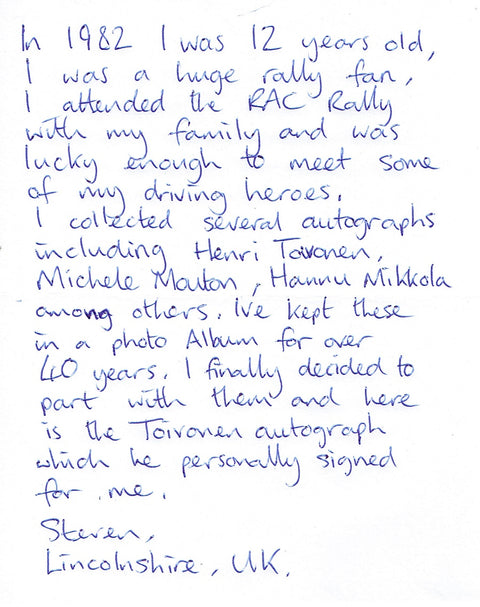 In 1982 I was 12 years old,
I was a huge rally fan,
I attended the RAC Rally
with my family and was
lucky enough to meet some
of my driving heroes.
I collected several autographs
including Henri Toivonen,
Michele Mouton, Hannu Mikkola
among others. Ive kept these
in a photo Album for over
40 years. I finally decided to
part with them and here
is the Toivonen autograph
which he personally signed
for me.
Steven,
Lincolnshire, UK.